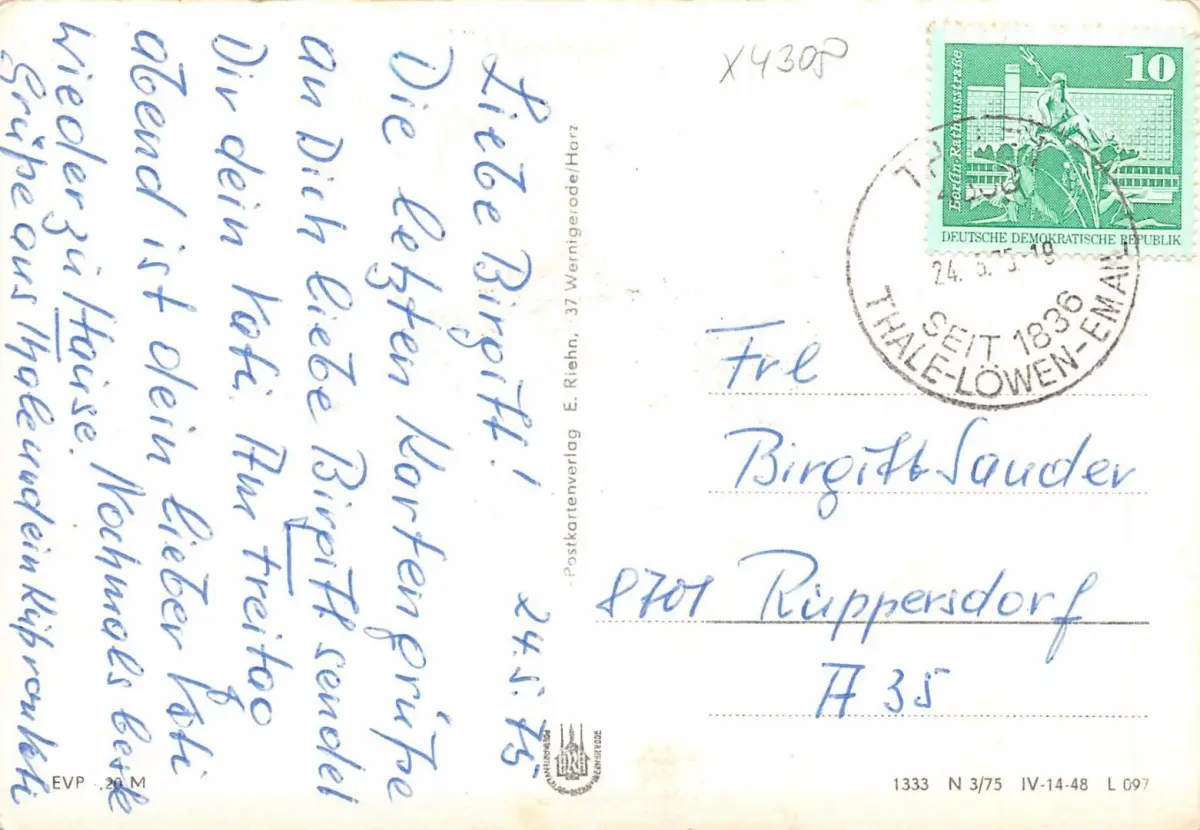 Liebe Birgitt! 24.5.75
Die letzten Kartengrüße
an Dich liebe Birgitt sendet
Dir dein Kati. Am Freitag
abend ist dein lieber Kati
wieder zu Hause. Nochmals beste
Grüße aus Thale und ein Küß
EVP -,20 M
Postkartenverlag E. Riehn, 37 Wernigerode/Harz
X4305
10
Berlin-Rathausstraße
DEUTSCHE DEMOKRATISCHE REPUBLIK
24. 5. 75-19
SEIT 1836
THALE-LÖWEN-EMAIL
Frl
Birgitt Sauder
8701 Ruppersdorf
A 35
1333 N 3/75 IV-14-48 L 097